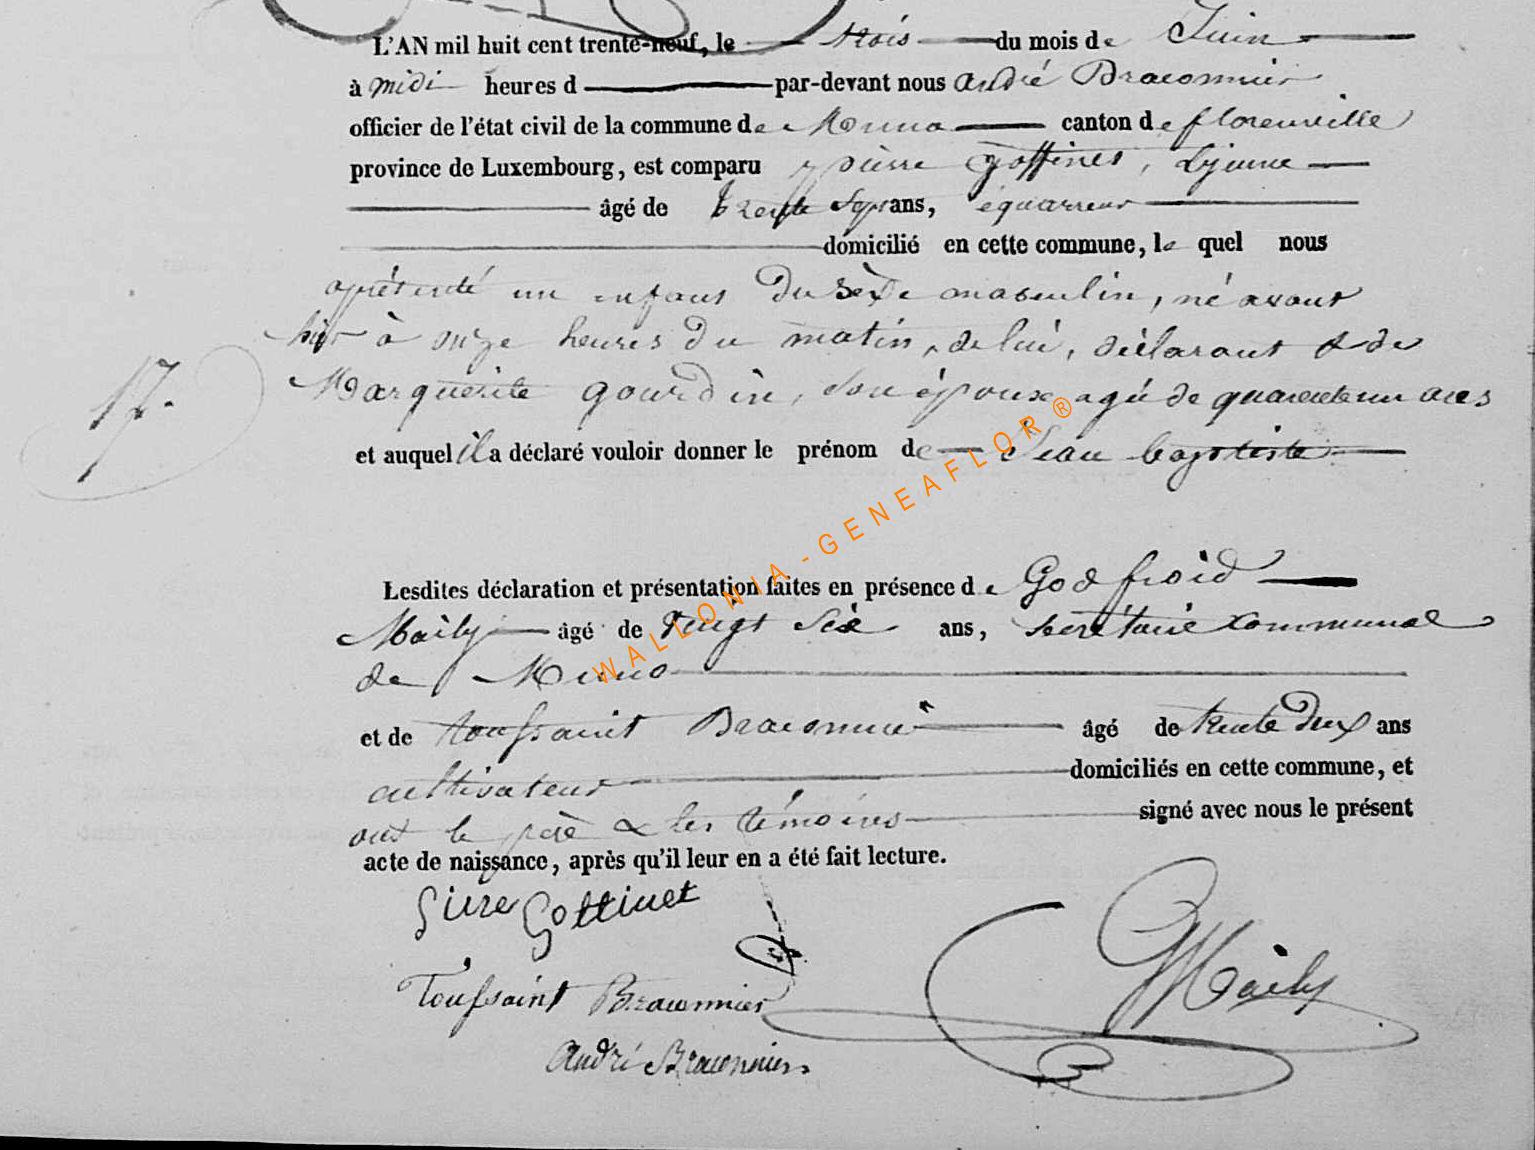 L'AN mil huit cent trente-neuf, le trois du mois de Juin
à midi heures d par-devant nous André Braconnier
officier de l'état civil de la commune de Muno canton de florenville
province de Luxembourg, est comparu pierre goffinet, lejeune
âgé de trente sept ans, équarreur
domicilié en cette commune, le quel nous
a présenté un enfant du sèxe masculin, né avant
hier à onze heures du matin, de lui, déclarant & de
Marguerite gourdin, son épouse agée de quarente un ans
17.
et auquel il a déclaré vouloir donner le prénom de Jean baptiste
WALLONIA-GENEAFLOR®
Lesdites déclaration et présentation faites en présence de Godfroid
Maily âgé de vingt six ans, secrétaire communal
de Muno
et de toussaint Braconnier âgé de trente deux ans
cultivateur domiciliés en cette commune, et
ont le père & les témoins signé avec nous le présent
acte de naissance, après qu'il leur en a été fait lecture.
Pierre Goffinet
GMaily
Toussaint Braconnier
André Braconnier